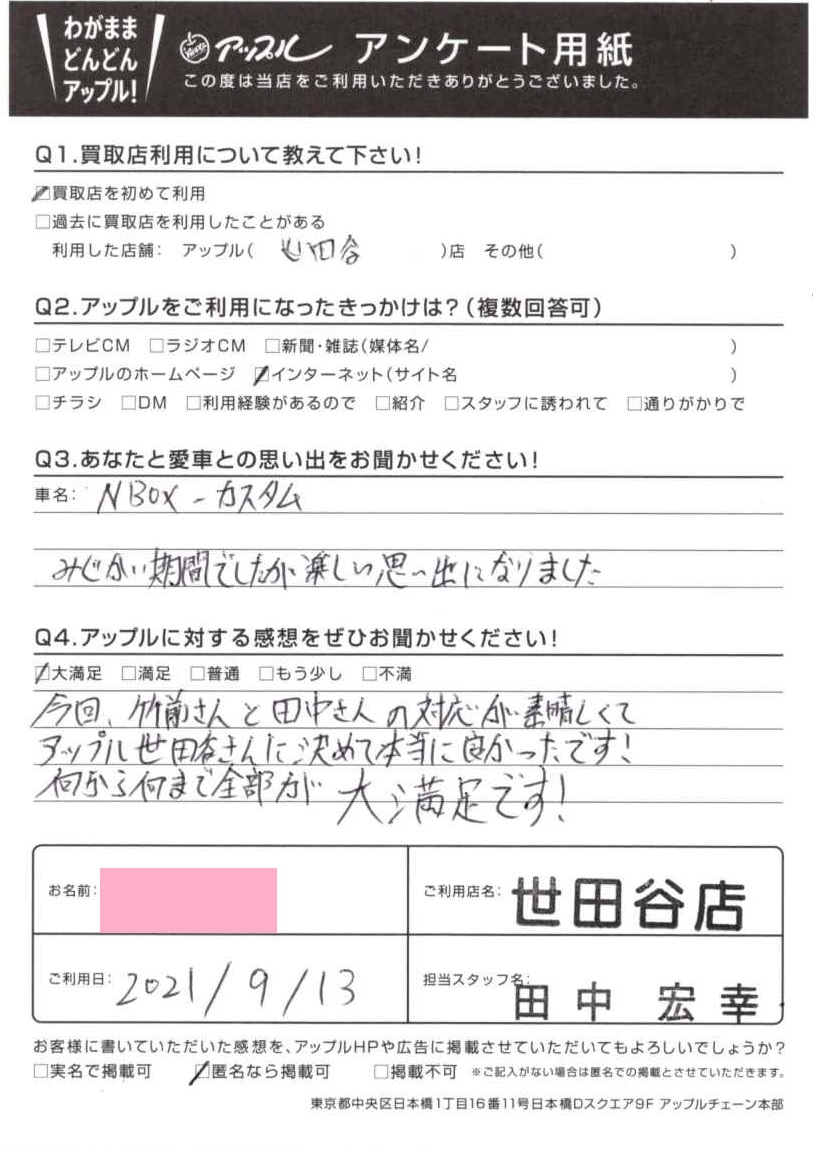 わがまま
どんどん
アップル!
アップル アンケート用紙
この度は当店をご利用いただきありがとうございました。
Q1.買取店利用について教えて下さい!
☑買取店を初めて利用
□過去に買取店を利用したことがある
利用した店舗: アップル( 世田谷 )店 その他( )
Q2.アップルをご利用になったきっかけは?(複数回答可)
□テレビCM □ラジオCM □新聞・雑誌(媒体名/ )
□アップルのホームページ ☑インターネット(サイト名 )
□チラシ □DM □利用経験があるので □紹介 □スタッフに誘われて □通りがかりで
Q3.あなたと愛車との思い出をお聞かせください!
車名: NBOX-カスタム
みじかい期間でしたが楽しい思い出になりました
Q4.アップルに対する感想をぜひお聞かせください!
☑大満足 □満足 □普通 □もう少し □不満
今回、竹前さんと田中さんの対応が素晴しくて
アップル世田谷さんに決めて本当に良かったです!
何から何まで全部が 大満足です!
お名前:
ご利用店名: 世田谷店
ご利用日: 2021/9/13
担当スタッフ名: 田中 宏幸
お客様に書いていただいた感想を、アップルHPや広告に掲載させていただいてもよろしいでしょうか?
□実名で掲載可 ☑匿名なら掲載可 □掲載不可 ※ご記入がない場合は匿名での掲載とさせていただきます。
東京都中央区日本橋1丁目16番11号日本橋Dスクエア9F アップルチェーン本部